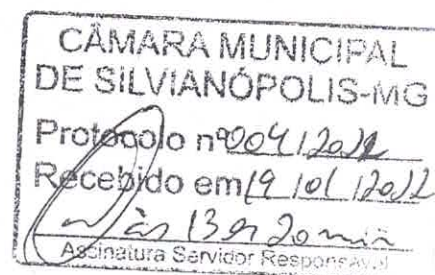 CÂMARA MUNICIPAL
DE SILVIANÓPOLIS-MG
Protocolo nº 004/2022
Recebido em 19/01/2022
às 13 h 20 min
Assinatura Servidor Responsável